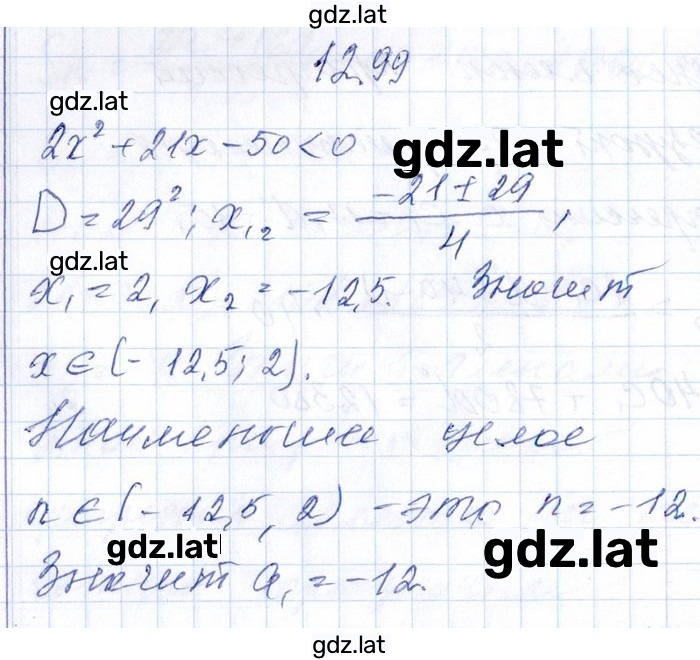 gdz.lat
12.99
gdz.lat
2x² + 21x - 50 < 0
gdz.lat
D = 29²; x₁,₂ = (-21 ± 29)/4,
gdz.lat
x₁ = 2, x₂ = -12,5. Значит
x ∈ (-12,5; 2).
Наименьшее целое
n ∈ (-12,5, 2) - это n = -12.
gdz.lat
gdz.lat
Значит a₁ = -12.
gdz.lat